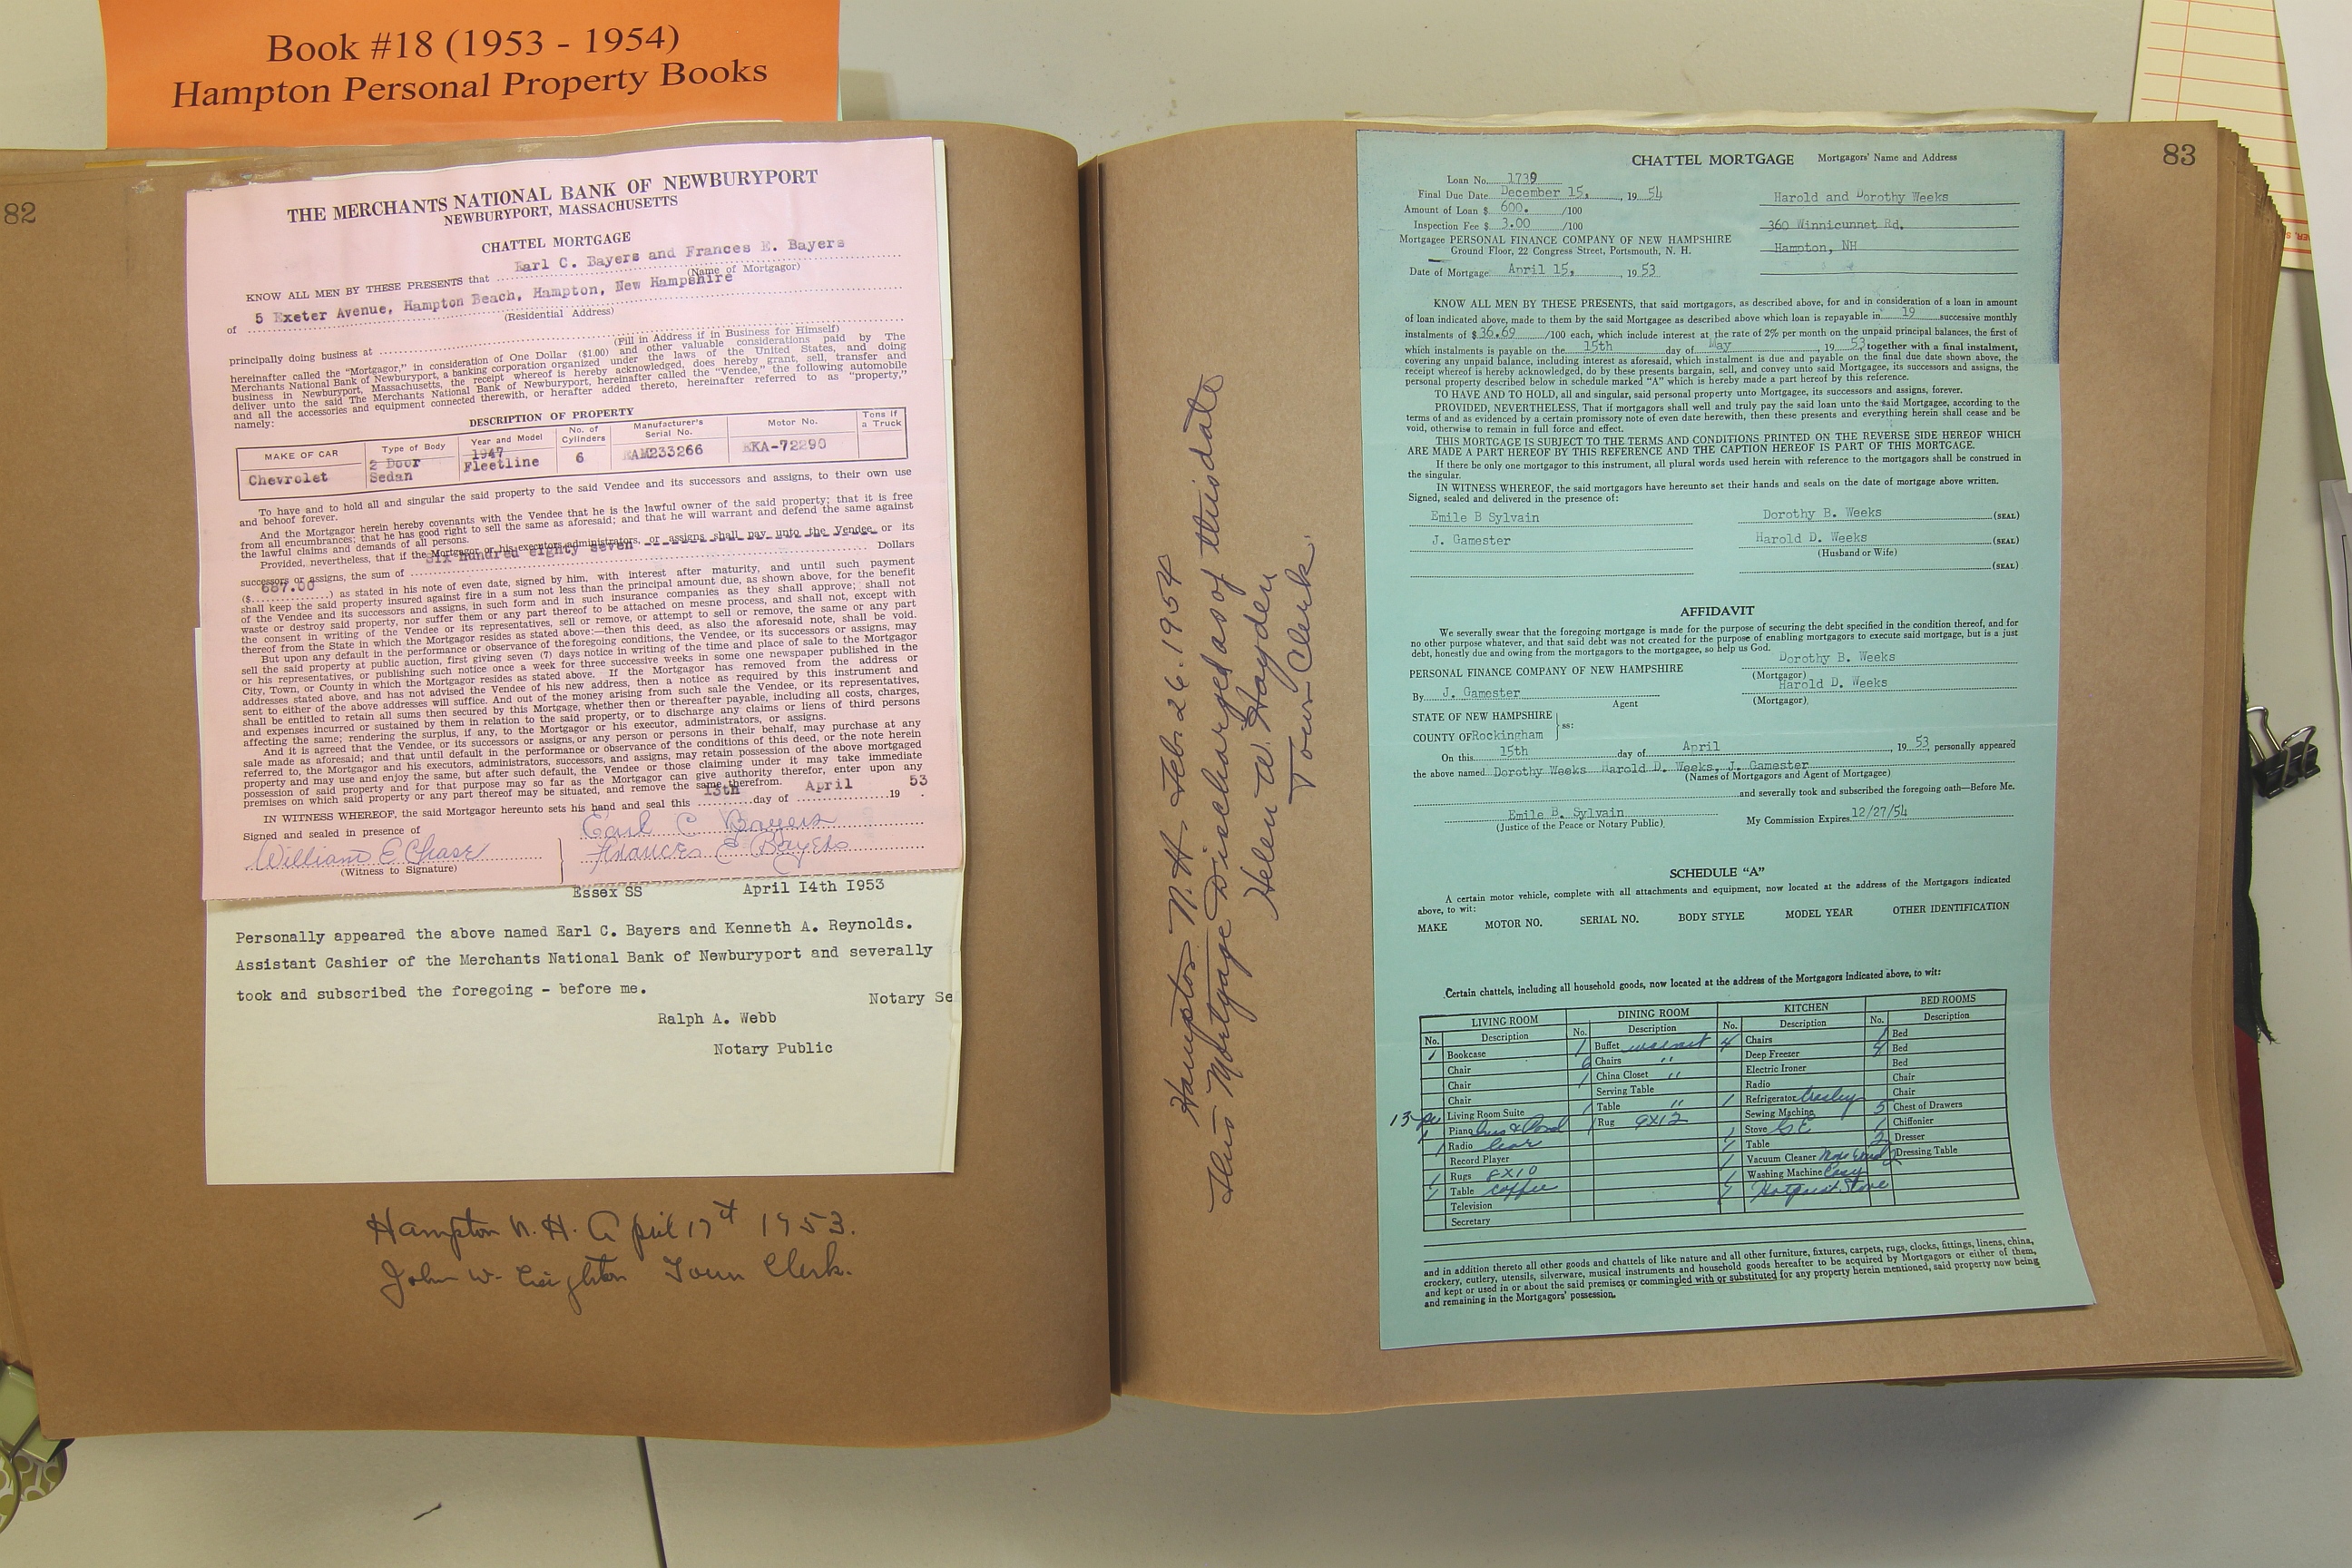 Book #18 (1953 - 1954)
Hampton Personal Property Books
82
THE MERCHANTS NATIONAL BANK OF NEWBURYPORT
NEWBURYPORT, MASSACHUSETTS
CHATTEL MORTGAGE
KNOW ALL MEN BY THESE PRESENTS that Earl C. Bayers and Frances E. Bayers
(Name of Mortgagor)
of 5 Exeter Avenue, Hampton Beach, Hampton, New Hampshire
(Residential Address)
principally doing business at
(Fill in Address if in Business for Himself)
hereinafter called the "Mortgagor," in consideration of One Dollar ($1.00) and other valuable considerations paid by The
Merchants National Bank of Newburyport, a banking corporation organized under the laws of the United States, and doing
business in Newburyport, Massachusetts, the receipt whereof is hereby acknowledged, does hereby grant, sell, transfer and
deliver unto the said The Merchants National Bank of Newburyport, hereinafter called the "Vendee," the following automobile
and all the accessories and equipment connected therewith, or herafter added thereto, hereinafter referred to as "property,"
namely:
DESCRIPTION OF PROPERTY
MAKE OF CAR Type of Body Year and Model No. of Cylinders Manufacturer's Serial No. Motor No. Tons if a Truck
Chevrolet 2 Door Sedan 1947 Fleetline 6 EAM233266 EKA-72290
To have and to hold all and singular the said property to the said Vendee and its successors and assigns, to their own use
and behoof forever.
And the Mortgagor herein hereby covenants with the Vendee that he is the lawful owner of the said property; that it is free
from all encumbrances; that he has good right to sell the same as aforesaid; and that he will warrant and defend the same against
the lawful claims and demands of all persons.
Provided, nevertheless, that if the Mortgagor or his executors, administrators, or assigns shall pay unto the Vendee or its
successors or assigns, the sum of Six Hundred eighty seven Dollars
($ 687.00 ) as stated in his note of even date, signed by him, with interest after maturity, and until such payment
shall keep the said property insured against fire in a sum not less than the principal amount due, as shown above, for the benefit
of the Vendee and its successors and assigns, in such form and in such insurance companies as they shall approve; shall not
waste or destroy said property, nor suffer them or any part thereof to be attached on mesne process, and shall not, except with
the consent in writing of the Vendee or its representatives, sell or remove, or attempt to sell or remove, the same or any part
thereof from the State in which the Mortgagor resides as stated above:—then this deed, as also the aforesaid note, shall be void.
But upon any default in the performance or observance of the foregoing conditions, the Vendee, or its successors or assigns, may
sell the said property at public auction, first giving seven (7) days notice in writing of the time and place of sale to the Mortgagor
or his representatives, or publishing such notice once a week for three successive weeks in some one newspaper published in the
City, Town, or County in which the Mortgagor resides as stated above. If the Mortgagor has removed from the address or
addresses stated above, and has not advised the Vendee of his new address, then a notice as required by this instrument and
sent to either of the above addresses will suffice. And out of the money arising from such sale the Vendee, or its representatives,
shall be entitled to retain all sums then secured by this Mortgage, whether then or thereafter payable, including all costs, charges,
and expenses incurred or sustained by them in relation to the said property, or to discharge any claims or liens of third persons
affecting the same; rendering the surplus, if any, to the Mortgagor or his executor, administrators, or assigns.
And it is agreed that the Vendee, or its successors or assigns, or any person or persons in their behalf, may purchase at any
sale made as aforesaid; and that until default in the performance or observance of the conditions of this deed, or the note herein
referred to, the Mortgagor and his executors, administrators, successors, and assigns, may retain possession of the above mortgaged
property and may use and enjoy the same, but after such default, the Vendee or those claiming under it may take immediate
possession of said property and for that purpose may so far as the Mortgagor can give authority therefor, enter upon any
premises on which said property or any part thereof may be situated, and remove the same therefrom.
IN WITNESS WHEREOF, the said Mortgagor hereunto sets his hand and seal this 13th day of April 19 53 .
Signed and sealed in presence of
William E Chase
(Witness to Signature)
Earl C Bayers
Frances E Bayers
Essex SS April I4th I953
Personally appeared the above named Earl C. Bayers and Kenneth A. Reynolds.
Assistant Cashier of the Merchants National Bank of Newburyport and severally
took and subscribed the foregoing - before me.
Notary Se
Ralph A. Webb
Notary Public
Hampton N. H. April 17th 1953.
John W. Creighton Town Clerk.
Hampton N. H. Feb. 26. 1954
This Mortgage Discharged as of this date
Helen W. Hayden
Town Clerk.
83
CHATTEL MORTGAGE Mortgagors' Name and Address
Loan No. 1739
Final Due Date December 15, , 19 54
Amount of Loan $ 600. /100
Inspection Fee $ 3.00 /100
Mortgagee PERSONAL FINANCE COMPANY OF NEW HAMPSHIRE
Ground Floor, 22 Congress Street, Portsmouth, N. H.
Date of Mortgage April 15, , 19 53
Harold and Dorothy Weeks
360 Winnicunnet Rd.
Hampton, NH
KNOW ALL MEN BY THESE PRESENTS, that said mortgagors, as described above, for and in consideration of a loan in amount
of loan indicated above, made to them by the said Mortgagee as described above which loan is repayable in 19 successive monthly
instalments of $ 36.69 /100 each, which include interest at the rate of 2% per month on the unpaid principal balances, the first of
which instalments is payable on the 15th day of May , 19 53 together with a final instalment,
covering any unpaid balance, including interest as aforesaid, which instalment is due and payable on the final due date shown above, the
receipt whereof is hereby acknowledged, do by these presents bargain, sell, and convey unto said Mortgagee, its successors and assigns, the
personal property described below in schedule marked "A" which is hereby made a part hereof by this reference.
TO HAVE AND TO HOLD, all and singular, said personal property unto Mortgagee, its successors and assigns, forever.
PROVIDED, NEVERTHELESS, That if mortgagors shall well and truly pay the said loan unto the said Mortgagee, according to the
terms of and as evidenced by a certain promissory note of even date herewith, then these presents and everything herein shall cease and be
void, otherwise to remain in full force and effect.
THIS MORTGAGE IS SUBJECT TO THE TERMS AND CONDITIONS PRINTED ON THE REVERSE SIDE HEREOF WHICH
ARE MADE A PART HEREOF BY THIS REFERENCE AND THE CAPTION HEREOF IS PART OF THIS MORTGAGE.
If there be only one mortgagor to this instrument, all plural words used herein with reference to the mortgagors shall be construed in
the singular.
IN WITNESS WHEREOF, the said mortgagors have hereunto set their hands and seals on the date of mortgage above written.
Signed, sealed and delivered in the presence of:
Emile B Sylvain Dorothy B. Weeks (SEAL)
J. Gamester Harold D. Weeks (SEAL)
(Husband or Wife)
(SEAL)
AFFIDAVIT
We severally swear that the foregoing mortgage is made for the purpose of securing the debt specified in the condition thereof, and for
no other purpose whatever, and that said debt was not created for the purpose of enabling mortgagors to execute said mortgage, but is a just
debt, honestly due and owing from the mortgagors to the mortgagee, so help us God.
PERSONAL FINANCE COMPANY OF NEW HAMPSHIRE Dorothy B. Weeks
(Mortgagor)
By J. Gamester Harold D. Weeks
Agent (Mortgagor)
STATE OF NEW HAMPSHIRE
ss:
COUNTY OF Rockingham
On this 15th day of April , 19 53 personally appeared
the above named Dorothy Weeks Harold D. Weeks, J. Gamester
(Names of Mortgagors and Agent of Mortgagee)
and severally took and subscribed the foregoing oath—Before Me.
Emile B. Sylvain My Commission Expires 12/27/54
(Justice of the Peace or Notary Public)
SCHEDULE "A"
A certain motor vehicle, complete with all attachments and equipment, now located at the address of the Mortgagors indicated
above, to wit:
MAKE MOTOR NO. SERIAL NO. BODY STYLE MODEL YEAR OTHER IDENTIFICATION
Certain chattels, including all household goods, now located at the address of the Mortgagors indicated above, to wit:
LIVING ROOM DINING ROOM KITCHEN BED ROOMS
No. Description No. Description No. Description No. Description
1 Bookcase 1 Buffet walnut 4 Chairs 1 Bed
Chair 6 Chairs " Deep Freezer 4 Bed
Chair 1 China Closet " Electric Ironer Bed
Chair Serving Table Radio Chair
13 pc Living Room Suite 1 Table " 1 Refrigerator Crosley Chair
1 Piano 1 Rug 9x12 Sewing Machine 5 Chest of Drawers
1 Radio 1 Stove G E 1 Chiffonier
Record Player 1 Table 2 Dresser
1 Rugs 8x10 1 Vacuum Cleaner Dressing Table
1 Table coffee 1 Washing Machine Easy
Television 1 Hotpoint Stove
Secretary
and in addition thereto all other goods and chattels of like nature and all other furniture, fixtures, carpets, rugs, clocks, fittings, linens, china,
crockery, cutlery, utensils, silverware, musical instruments and household goods hereafter to be acquired by Mortgagors or either of them,
and kept or used in or about the said premises or commingled with or substituted for any property herein mentioned, said property now being
and remaining in the Mortgagors' possession.